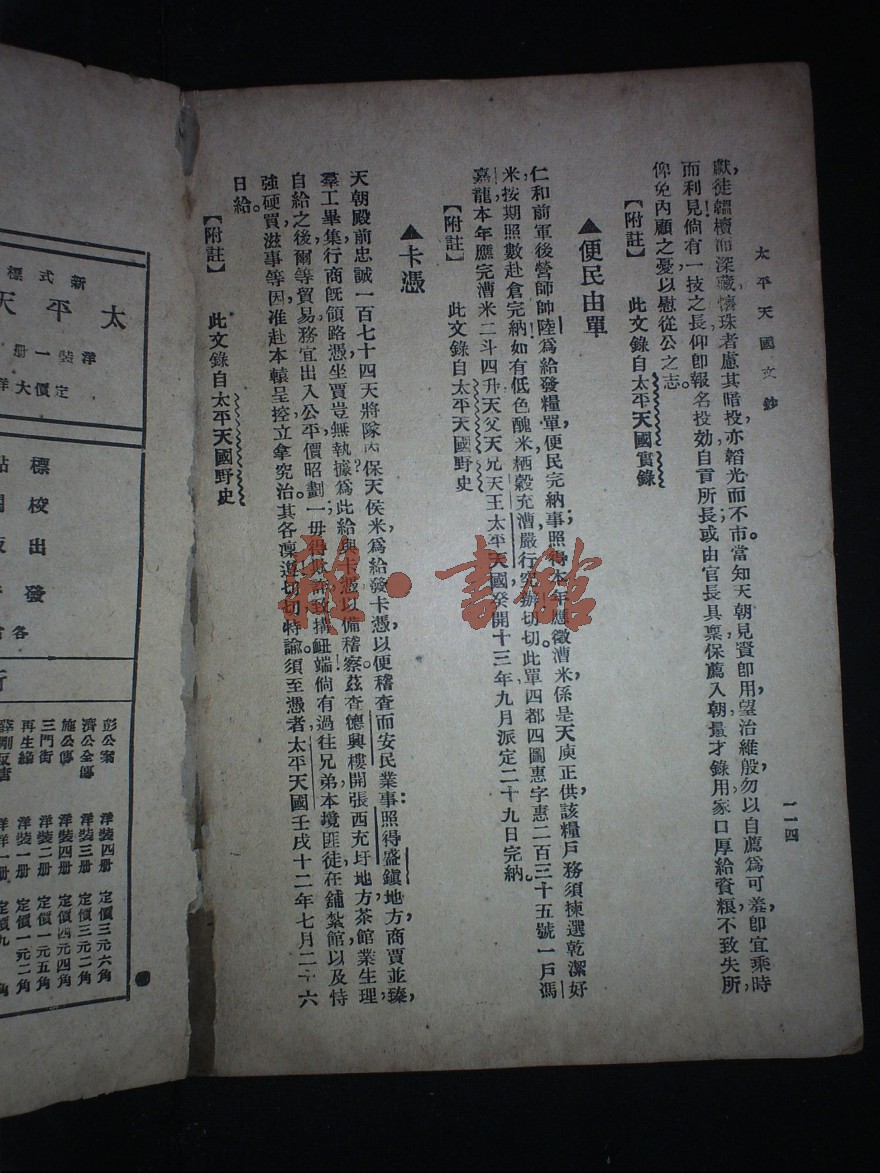 太平天國文鈔
一一四
獻徒韞櫝而深藏懷珠者慮其暗投亦韜光而不市當知天朝見資卽用望治維殷勿以自薦爲可羞卽宜乘時
而利見倘有一技之長仰卽報名投効自貢所長或由官長具稟保薦入朝量才錄用家口厚給資糧不致失所
俾免內顧之憂以慰從公之志。
【附註】 此文錄自太平天國實錄
▲便民由單
仁和前軍後營師帥陸爲給發糧單便民完納事照得本年應徵漕米係是天庾正供該糧戶務須揀選乾潔好
米按期照數赴倉完納如有低色醜米秕穀充漕嚴行究辦切切此單四都四圖惠字惠二百三十五號一戶馮
嘉龍本年應完漕米二斗四升天父天兄天王太平天國癸開十三年九月派定二十九日完納。
【附註】 此文錄自太平天國野史
▲卡憑
天朝殿前忠誠一百七十四天將隊內保天侯米爲給發卡憑以便稽查而安民業事照得盛鎮地方商賈並臻
羣工畢集行商旣領路憑坐賈豈無執據爲此給與卡憑以備稽察茲查德興樓開張西充圩地方茶館業生理
自給之後爾等貿易務宜出入公平價昭劃一毋得欺詐致搆釁端倘有過往兄弟本境匪徒在舖紮館以及恃
強硬買滋事等因准赴本轅呈控立拿究治其各凜遵切切特諭須至憑者太平天國壬戌十二年七月二十六
日給。
【附註】 此文錄自太平天國野史
雅·書館
新式標
太平天
洋裝一册
定價大洋
標
校出
發
各
彭公案 洋裝四册 定價三元六角
濟公全傳 洋裝三册 定價三元二角
施公傳 洋裝四册 定價四元四角
三門街 洋裝二册 定價一元五角
再生緣 洋裝一册 定價一元二角